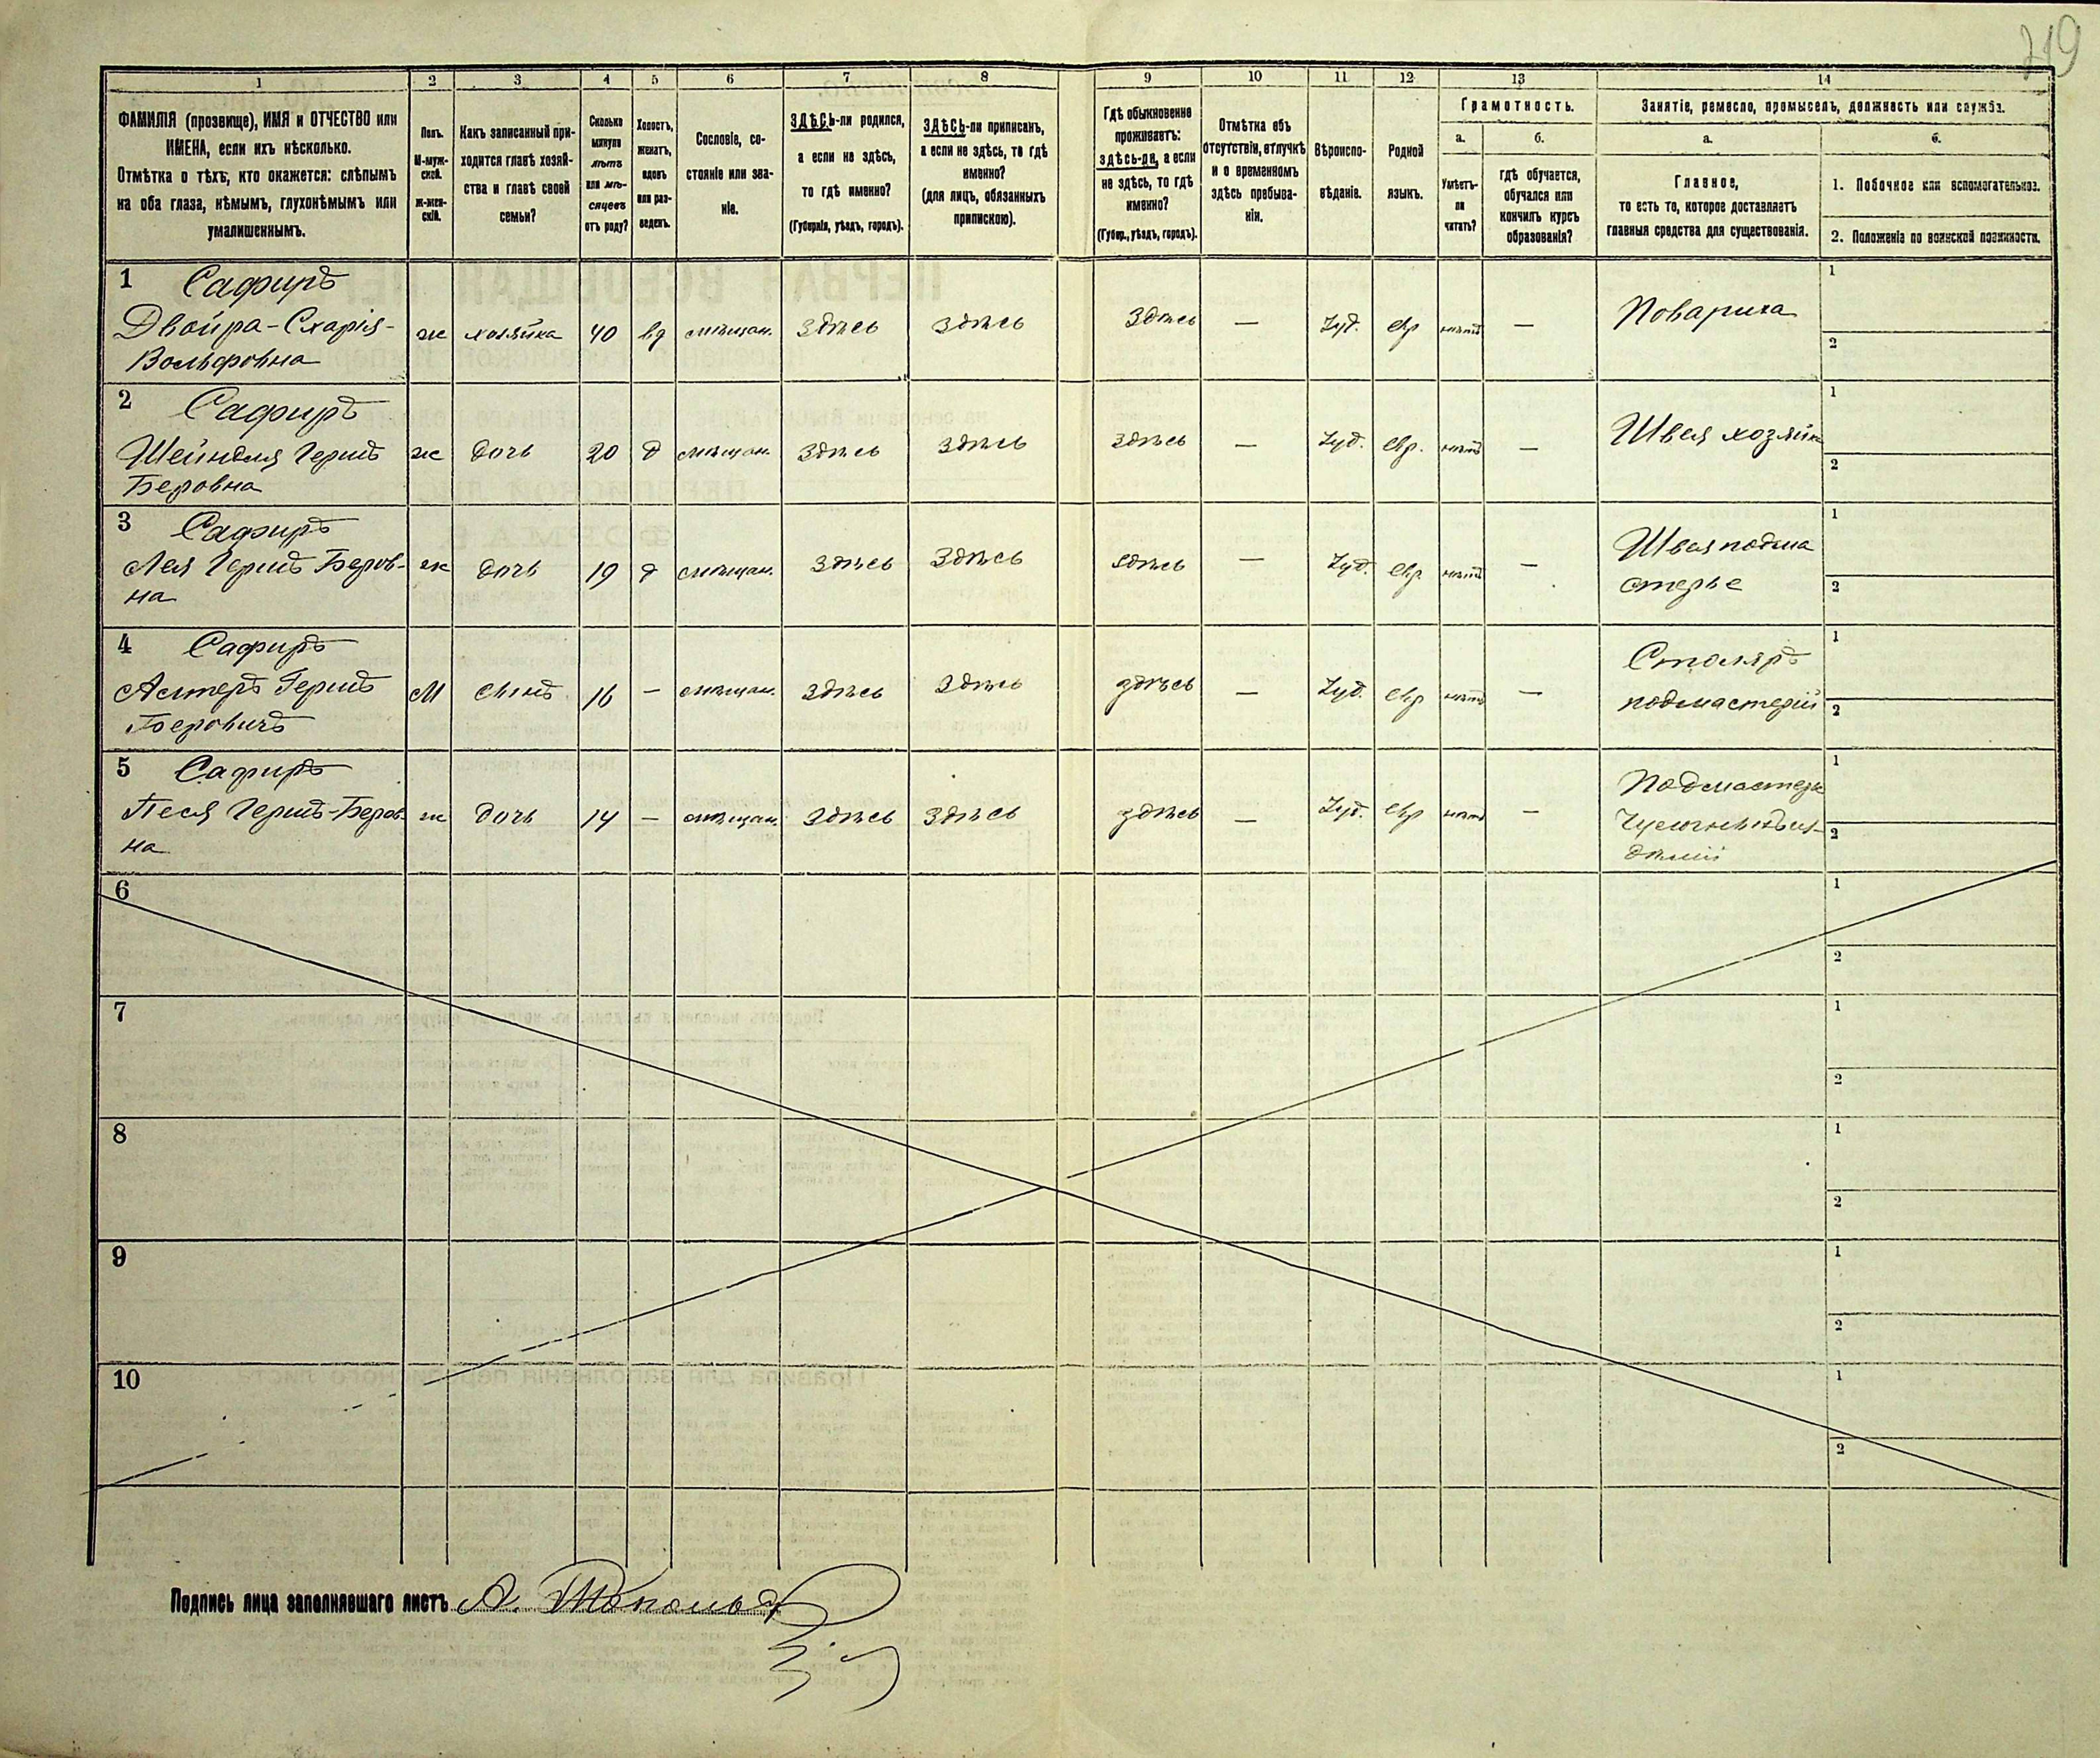 219
1 2 3 4 5 6 7 8 9 10 11 12 13 14
ФАМИЛІЯ (прозвище), ИМЯ и ОТЧЕСТВО или
ИМЕНА, если ихъ нѣсколько.
Отмѣтка о тѣхъ, кто окажется: слѣпымъ
на оба глаза, нѣмымъ, глухонѣмымъ или
умалишеннымъ.
Полъ.
М-муж-
ской.
Ж-жен-
скій.
Какъ записанный при-
ходится главѣ хозяй-
ства и главѣ своей
семьи?
Сколько
минуло
лѣтъ
или мѣ-
сяцевъ
отъ роду?
Холостъ,
женатъ,
вдовъ
или раз-
веденъ.
Сословіе, со-
стояніе или зва-
ніе.
ЗДѢСЬ-ли родился,
а если не здѣсь,
то гдѣ именно?
(Губернія, уѣздъ, городъ).
ЗДѢСЬ-ли приписанъ,
а если не здѣсь, то гдѣ
именно?
(для лицъ, обязанныхъ
припискою).
Гдѣ обыкновенно
проживаетъ:
здѣсь-ли, а если
не здѣсь, то гдѣ
именно?
(Губер., уѣздъ, городъ).
Отмѣтка объ
отсутствіи, отлучкѣ
и о временномъ
здѣсь пребыва-
ніи.
Вѣроиспо-
вѣданіе.
Родной
языкъ.
Грамотность.
а.
Умѣетъ-
ли
читать?
б.
гдѣ обучается,
обучался или
кончилъ курсъ
образованія?
Занятіе, ремесло, промыселъ, должность или служба.
а.
Главное,
то есть то, которое доставляетъ
главныя средства для существованія.
б.
1. Побочное или вспомогательное.
2. Положеніе по воинской повинности.
1 Сафиръ
Двойра-Схарія-
Вольфовна
ж хозяйка 40 вд мѣщан. здѣсь здѣсь здѣсь — Іуд. евр нѣтъ — Повариха
1
2
2 Сафиръ
Шейндля Гершъ
Беровна
ж дочь 20 д мѣщан. здѣсь здѣсь здѣсь — Іуд. евр. нѣтъ — Швея хозяйка
1
2
3 Сафиръ
Лея Гершъ Беров-
на
ж дочь 19 д мѣщан. здѣсь здѣсь здѣсь — Іуд. евр. нѣтъ — Швея подма
стерье
1
2
4 Сафиръ
Астеръ Гершъ
Беровичъ
М сынъ 16 — мѣщан. здѣсь здѣсь здѣсь — Іуд. евр нѣтъ — Столяръ
подмастерій
1
2
5 Сафиръ
Песя Гершъ-Беров-
на
ж дочь 14 — мѣщан. здѣсь здѣсь здѣсь — Іуд. евр нѣтъ — Подмастерье
дѣлій
1
2
6
1
2
7
1
2
8
1
2
9
1
2
10
1
2
Подпись лица заполнявшаго листъ А.